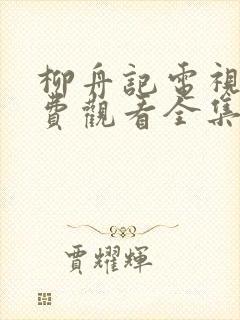 柳舟記電視
費觀看全集
賈耀輝